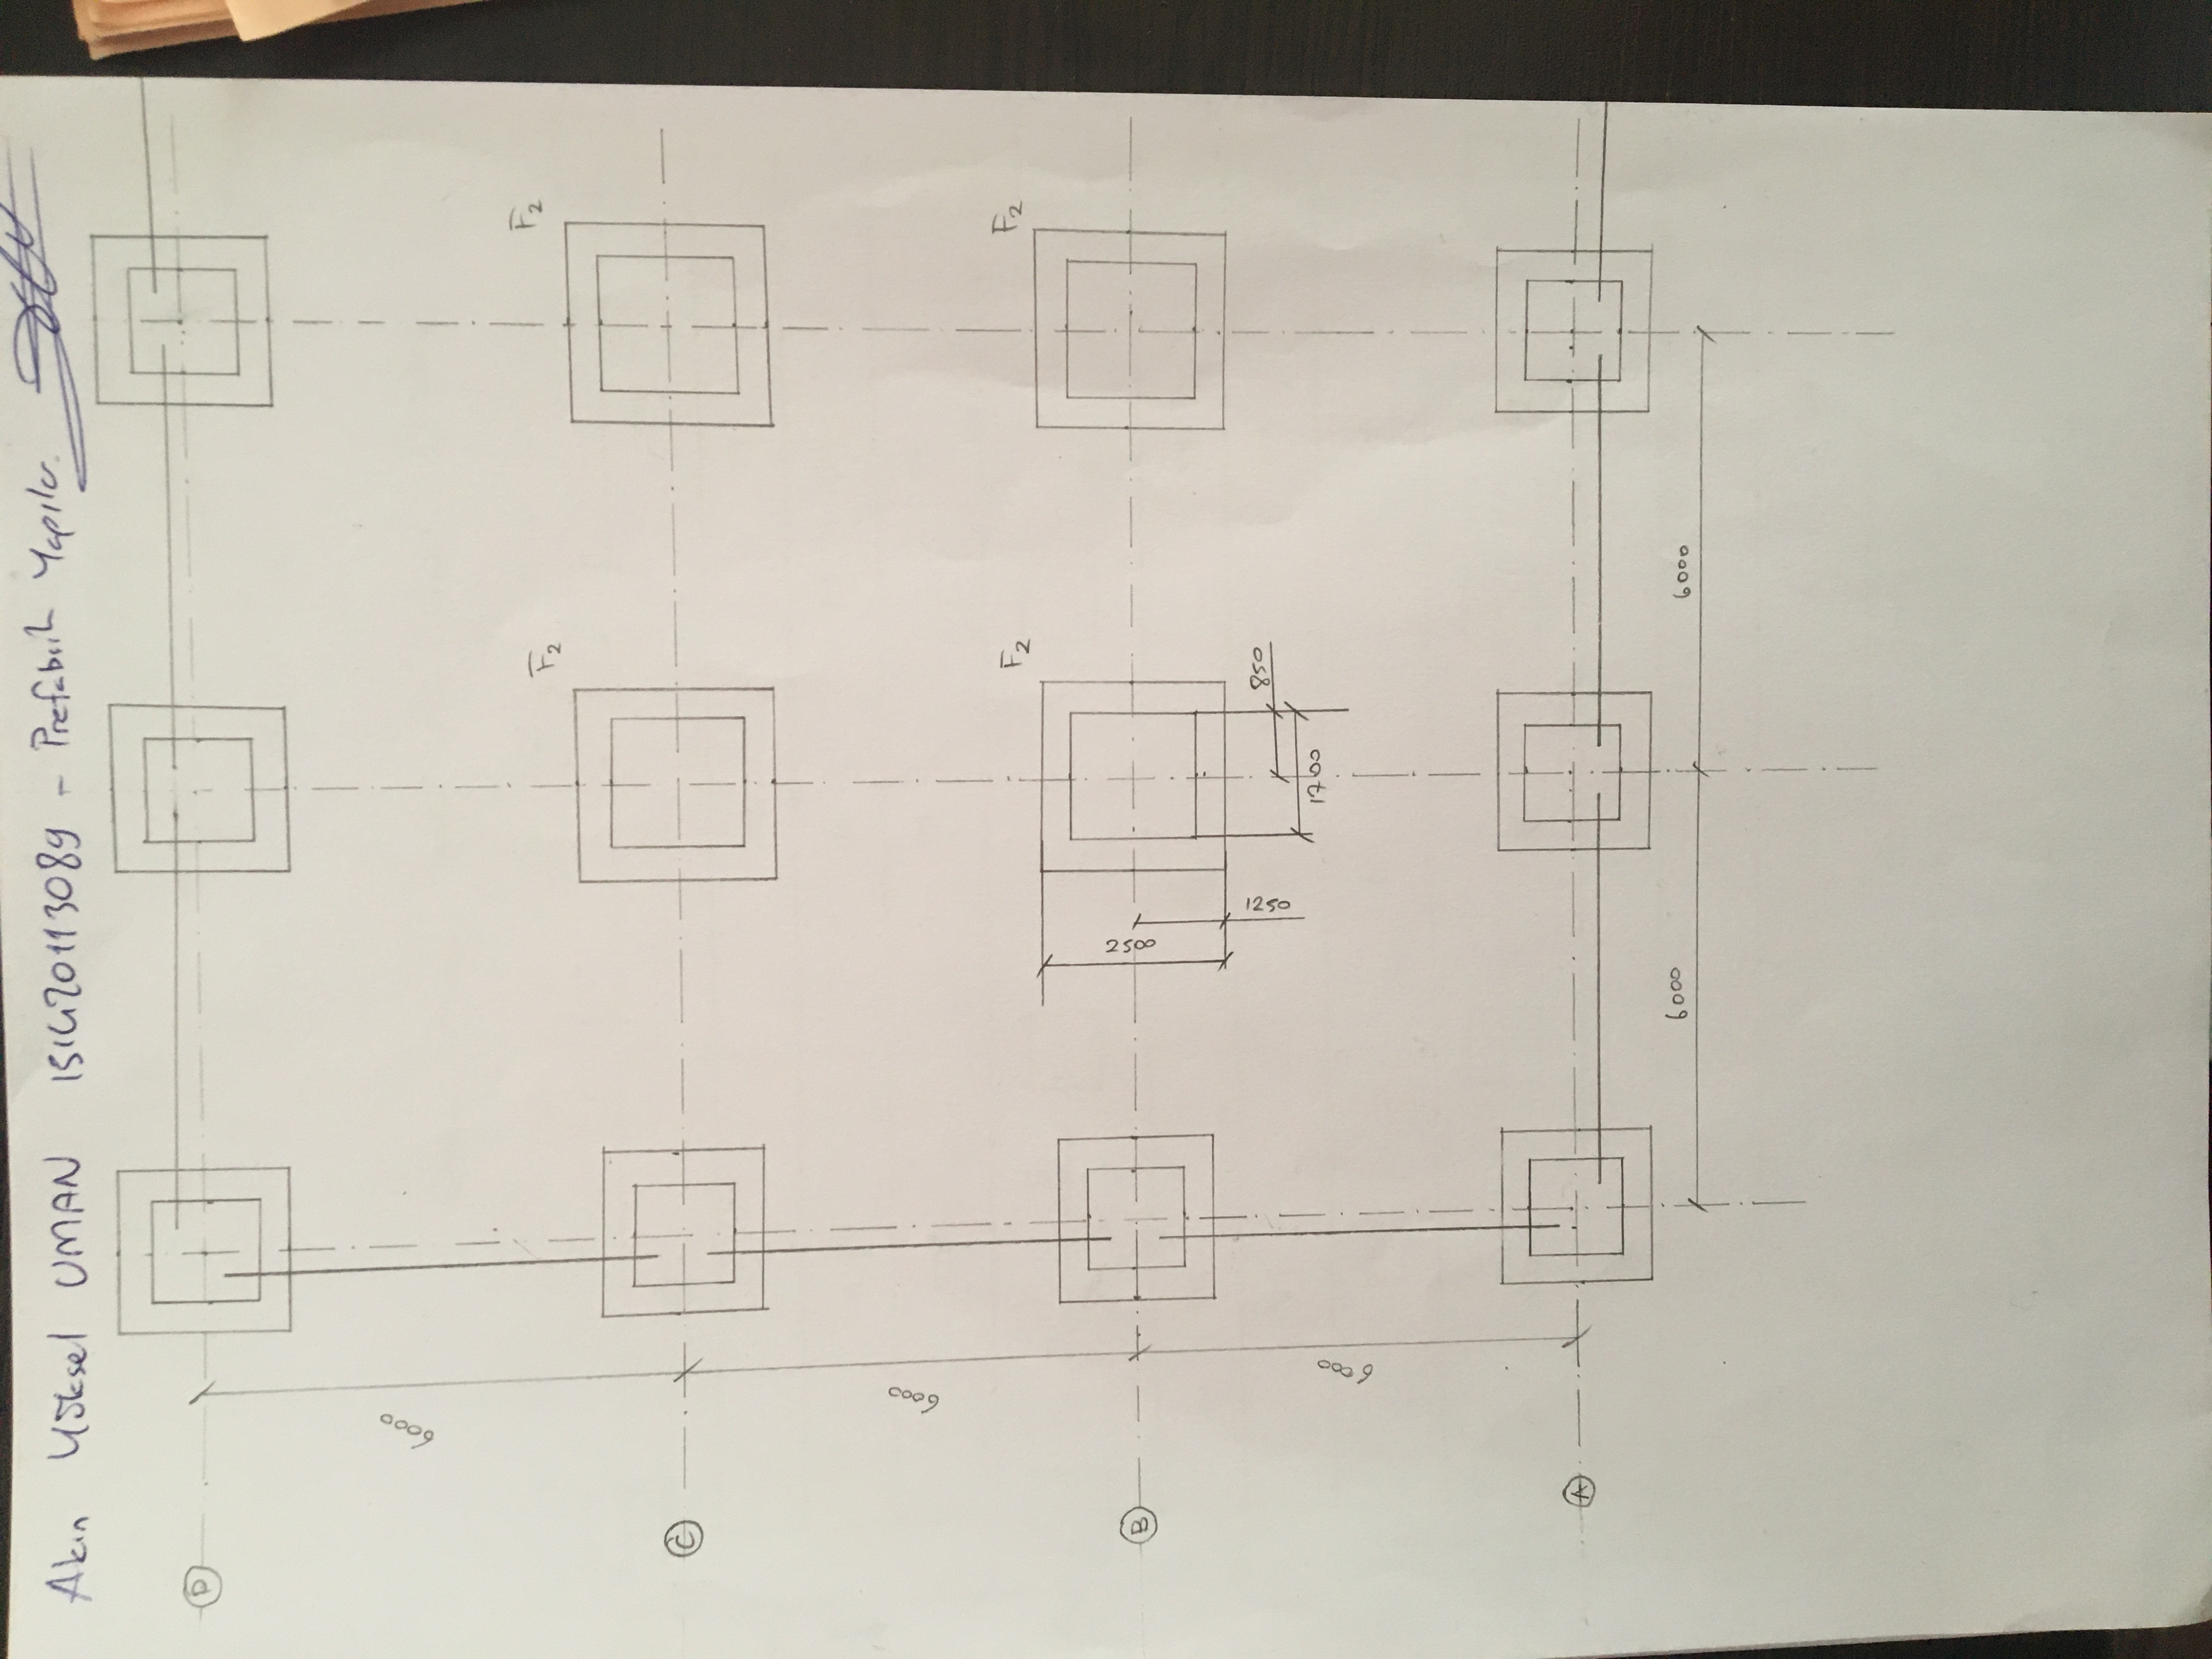 Akın Yüksel UMAN 151420113089 - Prefabrik Yapılar.
D
6000
F2
F2
C
6000
F2
F2
2500
B
1250
850
1700
6000
A
6000
6000